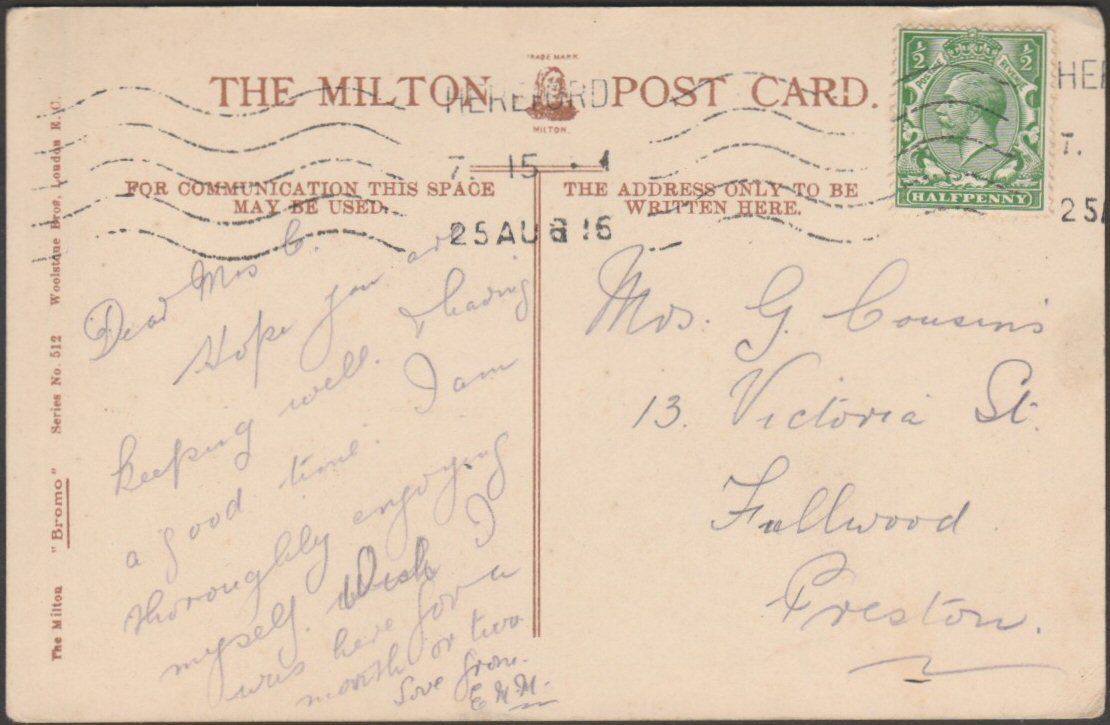 TRADE MARK
THE MILTON POST CARD.
MILTON.
HEREFORD
7 15
25 AU 16
HER
7.
25A
½ ½
POSTAGE REVENUE
HALFPENNY
FOR COMMUNICATION THIS SPACE
MAY BE USED.
THE ADDRESS ONLY TO BE
WRITTEN HERE.
The Milton "Bromo" Series No. 512 Woolstone Bros, London E.C.
Dear Mrs C.
Hope you are
keeping well. & having
a good time. I am
thoroughly enjoying
myself. Wish I
was here for a
month or two
Love from.
E M M.
Mrs. G. Cousins
13. Victoria St.
Fullwood
Preston.